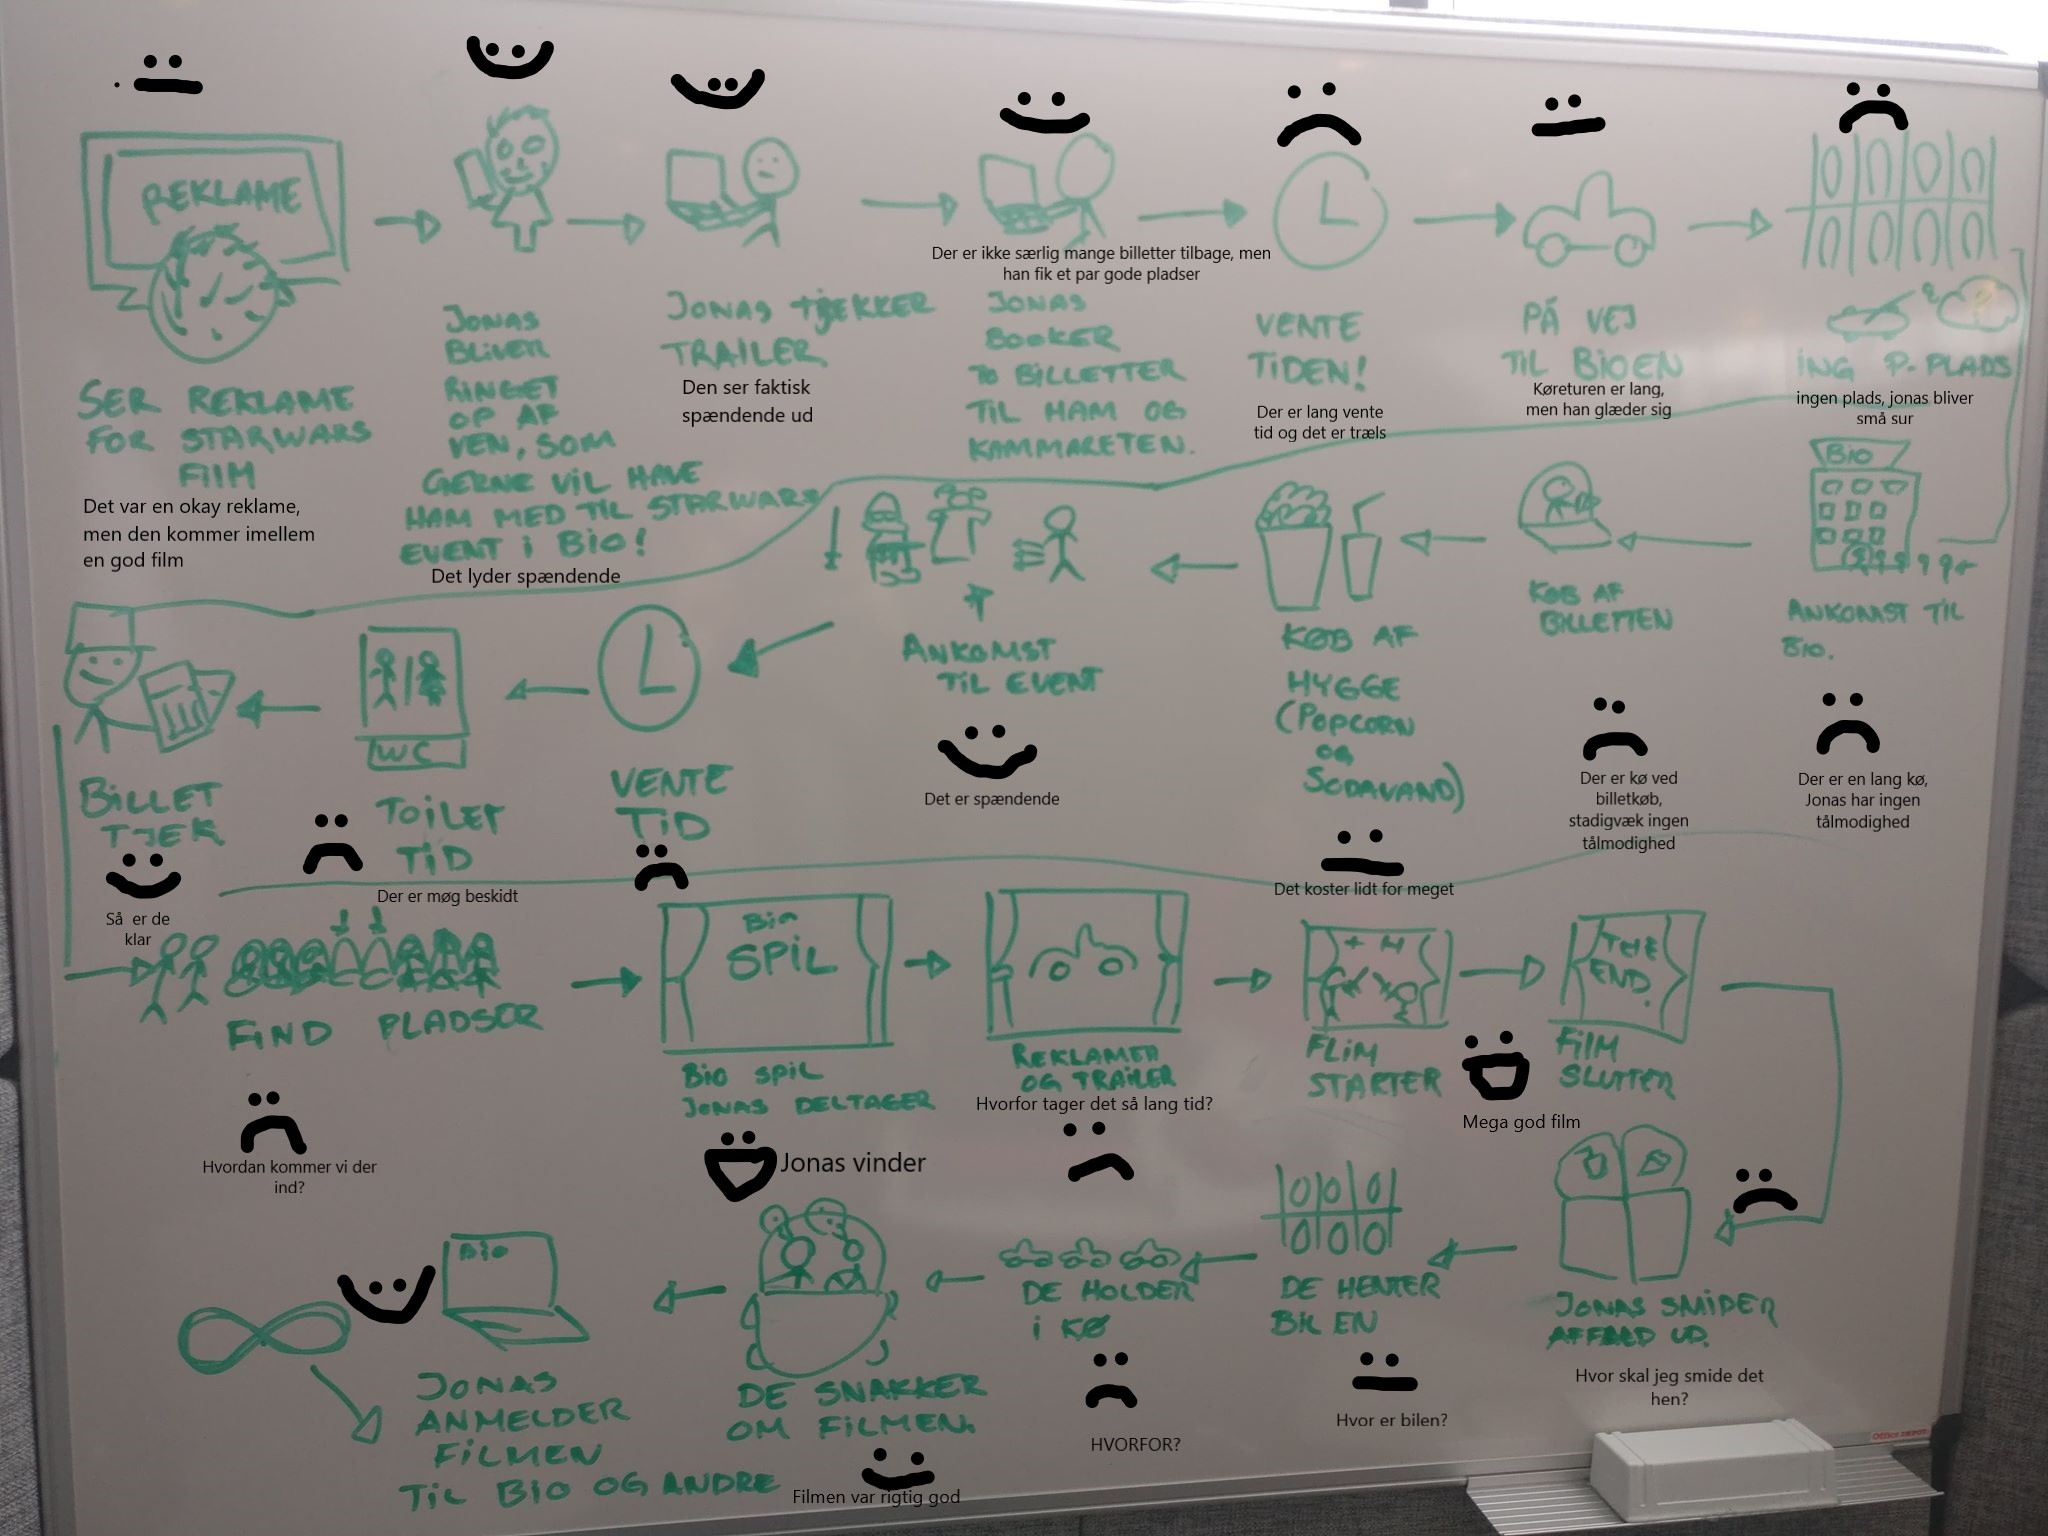 REKLAME
SER REKLAME
FOR STARWARS
FILM
Det var en okay reklame,
men den kommer imellem
en god film
JONAS
BLIVER
RINGET
OP AF
VEN, SOM
GERNE VIL HAVE
HAM MED TIL STARWARS
EVENT I BIO!
Det lyder spændende
JONAS TJEKKER
TRAILER
Den ser faktisk
spændende ud
Der er ikke særlig mange billetter tilbage, men
han fik et par gode pladser
JONAS
BOOKER
TO BILLETTER
TIL HAM OG
KAMMARETEN.
VENTE
TIDEN!
Der er lang vente
tid og det er træls
PÅ VEJ
TIL BIOEN
Køreturen er lang,
men han glæder sig
ING P. PLADS
ingen plads, jonas bliver
små sur
BIO
ANKOMST TIL
BIO.
Der er en lang kø,
Jonas har ingen
tålmodighed
KØB AF
BILLETTEN
Der er kø ved
billetkøb,
stadigvæk ingen
tålmodighed
KØB AF
HYGGE
(POPCORN
OG
SODAVAND)
Det koster lidt for meget
ANKOMST
TIL EVENT
Det er spændende
VENTE
TID
WC
TOILET
TID
Der er møg beskidt
BILLET
TJEK
Så er de
klar
FIND PLADSER
Hvordan kommer vi der
ind?
BIO
SPIL
BIO SPIL
JONAS DELTAGER
Jonas vinder
REKLAMER
OG TRAILER
Hvorfor tager det så lang tid?
FLIM
STARTER
Mega god film
THE
END.
FILM
SLUTTER
JONAS SMIDER
AFFALD UD.
Hvor skal jeg smide det
hen?
DE HENTER
BILEN
Hvor er bilen?
DE HOLDER
I KØ
HVORFOR?
DE SNAKKER
OM FILMEN.
Filmen var rigtig god
BIO
JONAS
ANMELDER
FILMEN
TIL BIO OG ANDRE
Office DEPOT